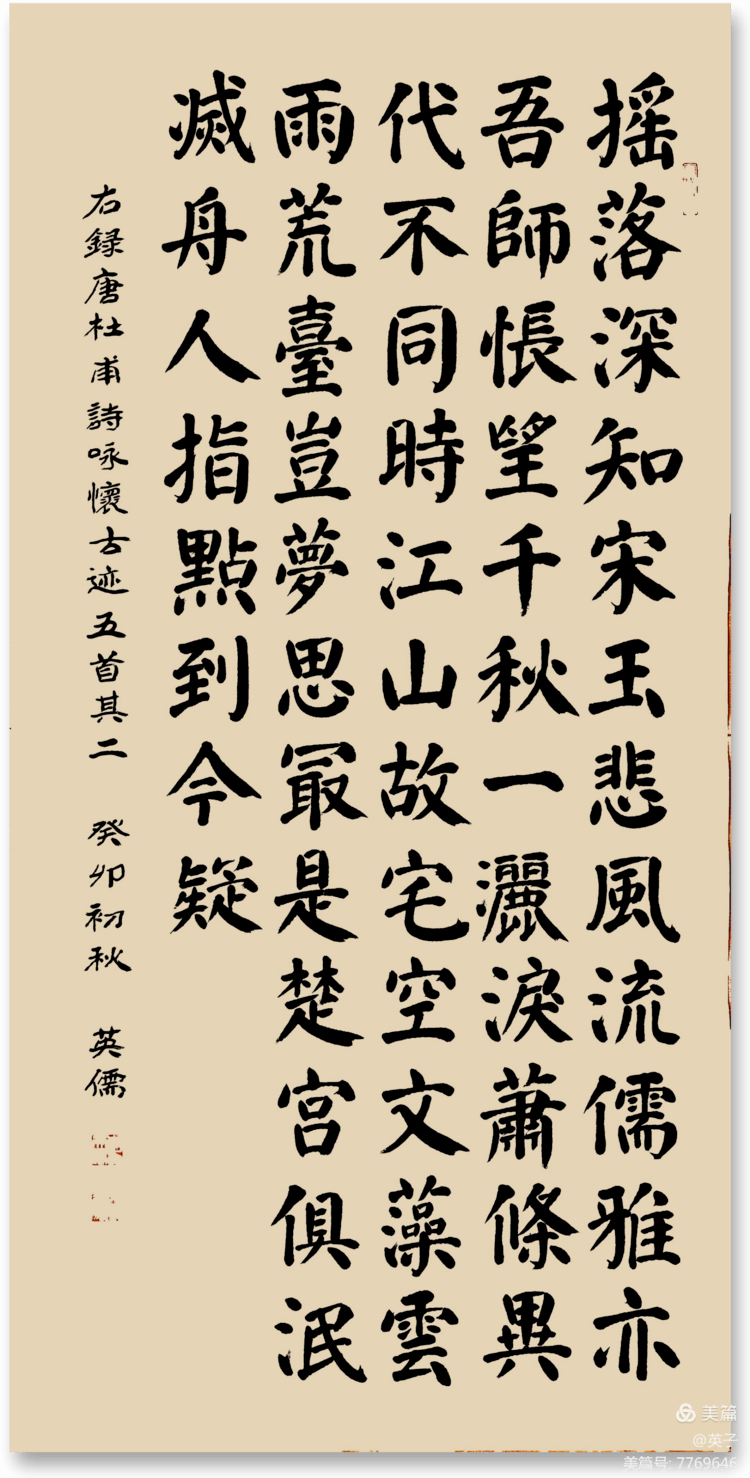 摇落深知宋玉悲風流儒雅亦
吾師悵望千秋一灑淚蕭條異
代不同時江山故宅空文藻雲
雨荒臺豈夢思最是楚宫俱泯
滅舟人指點到今疑
右録唐杜甫詩咏懷古迹五首其二 癸卯初秋 英儒
美篇
@英子
美篇号: 7769646